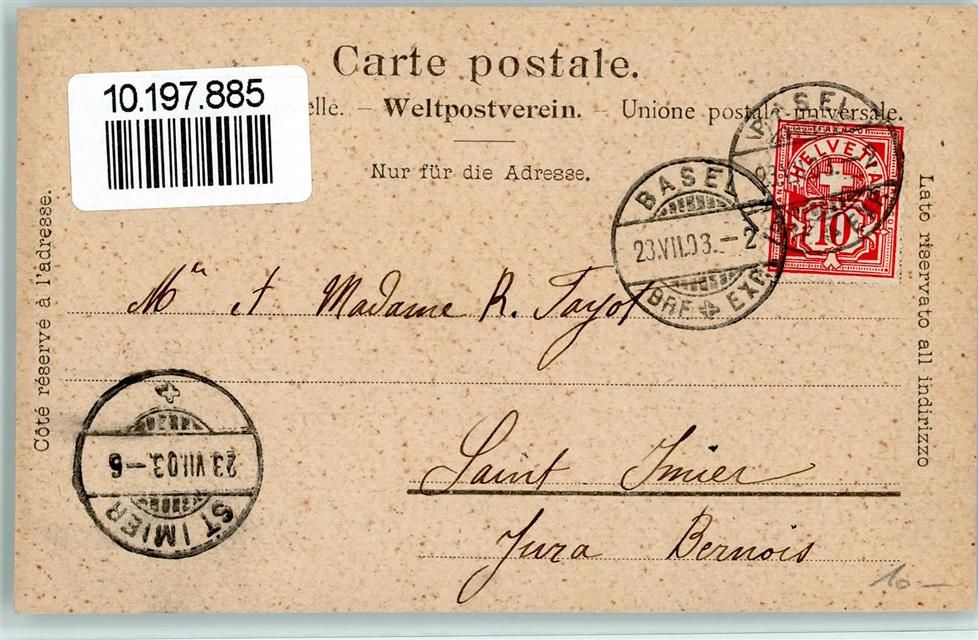 Carte postale.
10.197.885
elle. – Weltpostverein. – Unione postale universale.
Nur für die Adresse.
Côté réservé à l'adresse.
Lato riservato all indirizzo
HELVETIA
FRANCO
10
BASEL
BASEL
23.VII.03.–2
BRF. EXP.
Mr et Madame R. Fayot
Saint Imier
Jura Bernois
23 VII.03.–6
ST IMIER
10–